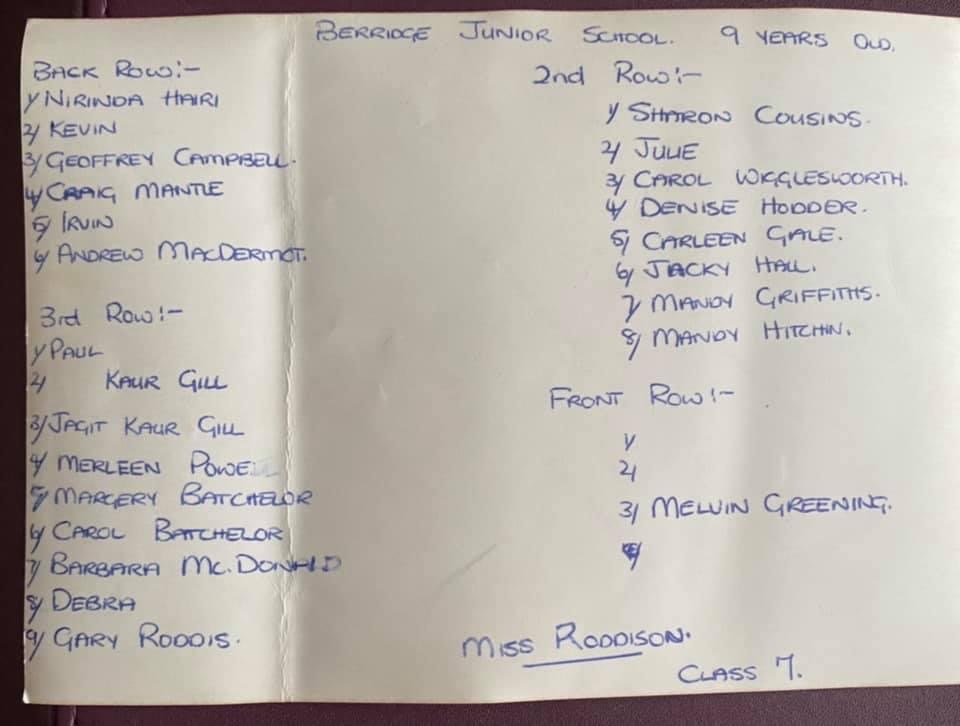 BERRIDGE JUNIOR SCHOOL. 9 YEARS OLD.
BACK ROW:-
1/ NIRINDA HAIRI
2/ KEVIN
3/ GEOFFREY CAMPBELL.
4/ CRAIG MANTLE
5/ IRVIN
6/ ANDREW MACDERMOT.
3rd ROW:-
1/ PAUL
2/ KAUR GILL
3/ JAGIT KAUR GILL
4/ MERLEEN POWELL
5/ MARGERY BATCHELOR
6/ CAROL BATCHELOR
7/ BARBARA MC.DONALD
8/ DEBRA
9/ GARY RODDIS.
2nd ROW:-
1/ SHARON COUSINS.
2/ JULIE
3/ CAROL WIGGLESWORTH.
4/ DENISE HODDER.
5/ CARLEEN GALE.
6/ JACKY HALL.
7/ MANDY GRIFFITHS.
8/ MANDY HITCHIN.
FRONT ROW:-
1/
2/
3/ MELVIN GREENING.
4/
MISS RODDISON.
CLASS 7.